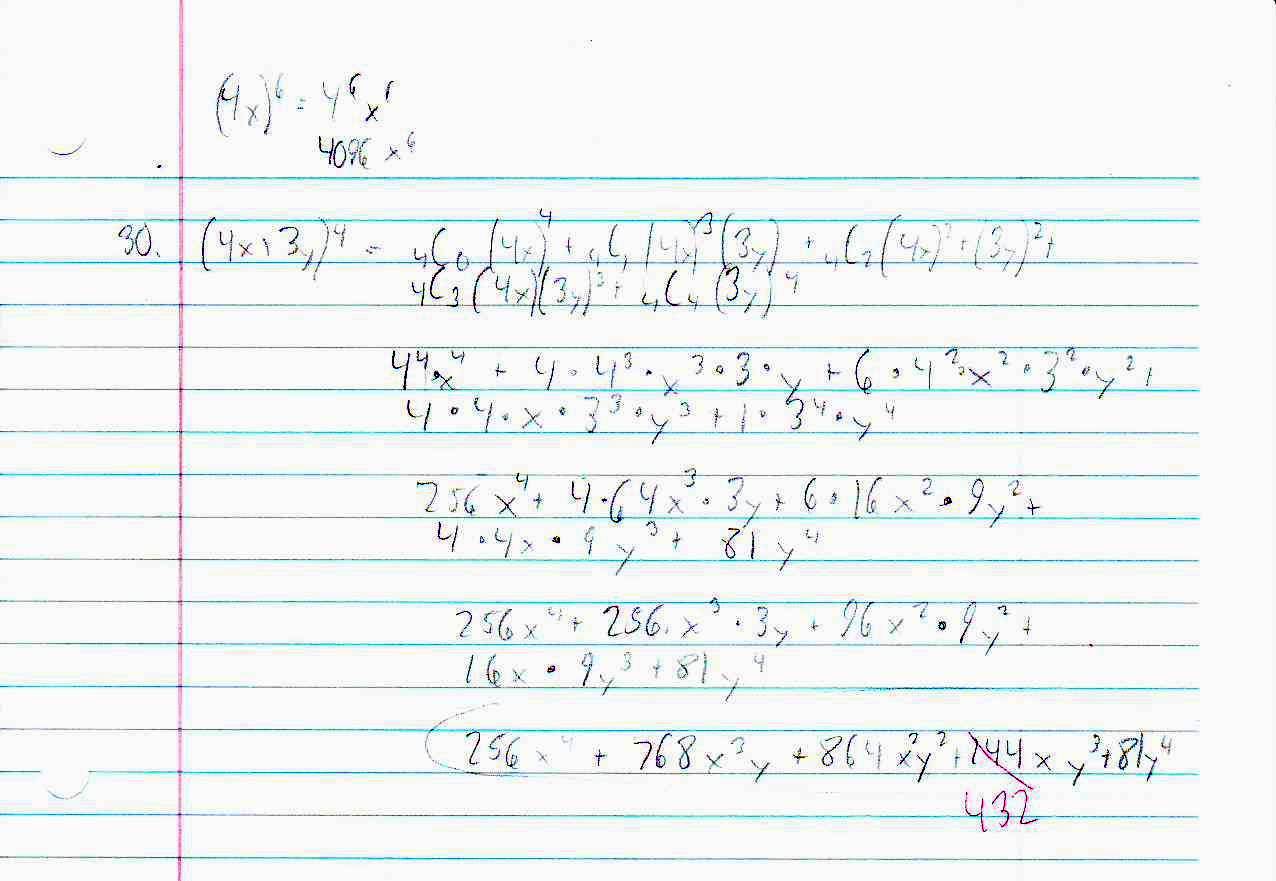 (4x)⁶ = 4⁶ x⁶
4096 x⁶
30. (4x+3y)⁴ = ₄C₀ (4x)⁴ + ₄C₁ (4x)³ (3y) + ₄C₂ (4x)² + (3y)² +
₄C₃ (4x)(3y)³ + ₄C₄ (3y)⁴
4⁴·x⁴ + 4·4³·x³·3·y + 6·4²·x²·3²·y² +
4·4·x·3³·y³ + 1·3⁴·y⁴
256x⁴ + 4·64x³·3y + 6·16x²·9y² +
4·4x·9y³ + 81y⁴
256x⁴ + 256·x³·3y + 96x²·9y² +
16x·9y³ + 81y⁴
256x⁴ + 768x³y + 864x²y² + 144xy³ + 81y⁴
432